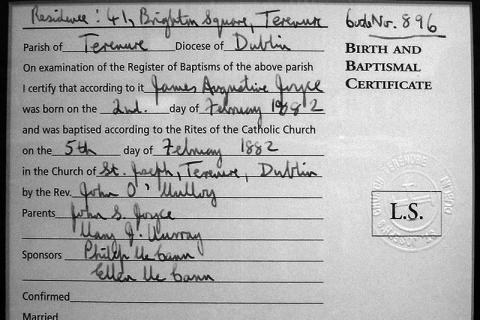 Residence: 41, Brighton Square, Terenure
Parish of Terenure Diocese of Dublin
On examination of the Register of Baptisms of the above parish
I certify that according to it James Augustine Joyce
was born on the 2nd. day of February 1882
and was baptised according to the Rites of the Catholic Church
on the 5th day of February 1882
in the Church of St. Joseph, Terenure, Dublin
by the Rev. John O' Mulloy
Parents John S. Joyce
Mary J. Murray
Sponsors Philip McCann
Ellen McCann
Confirmed
Married
No. 896
BIRTH AND
BAPTISMAL
CERTIFICATE
L.S.